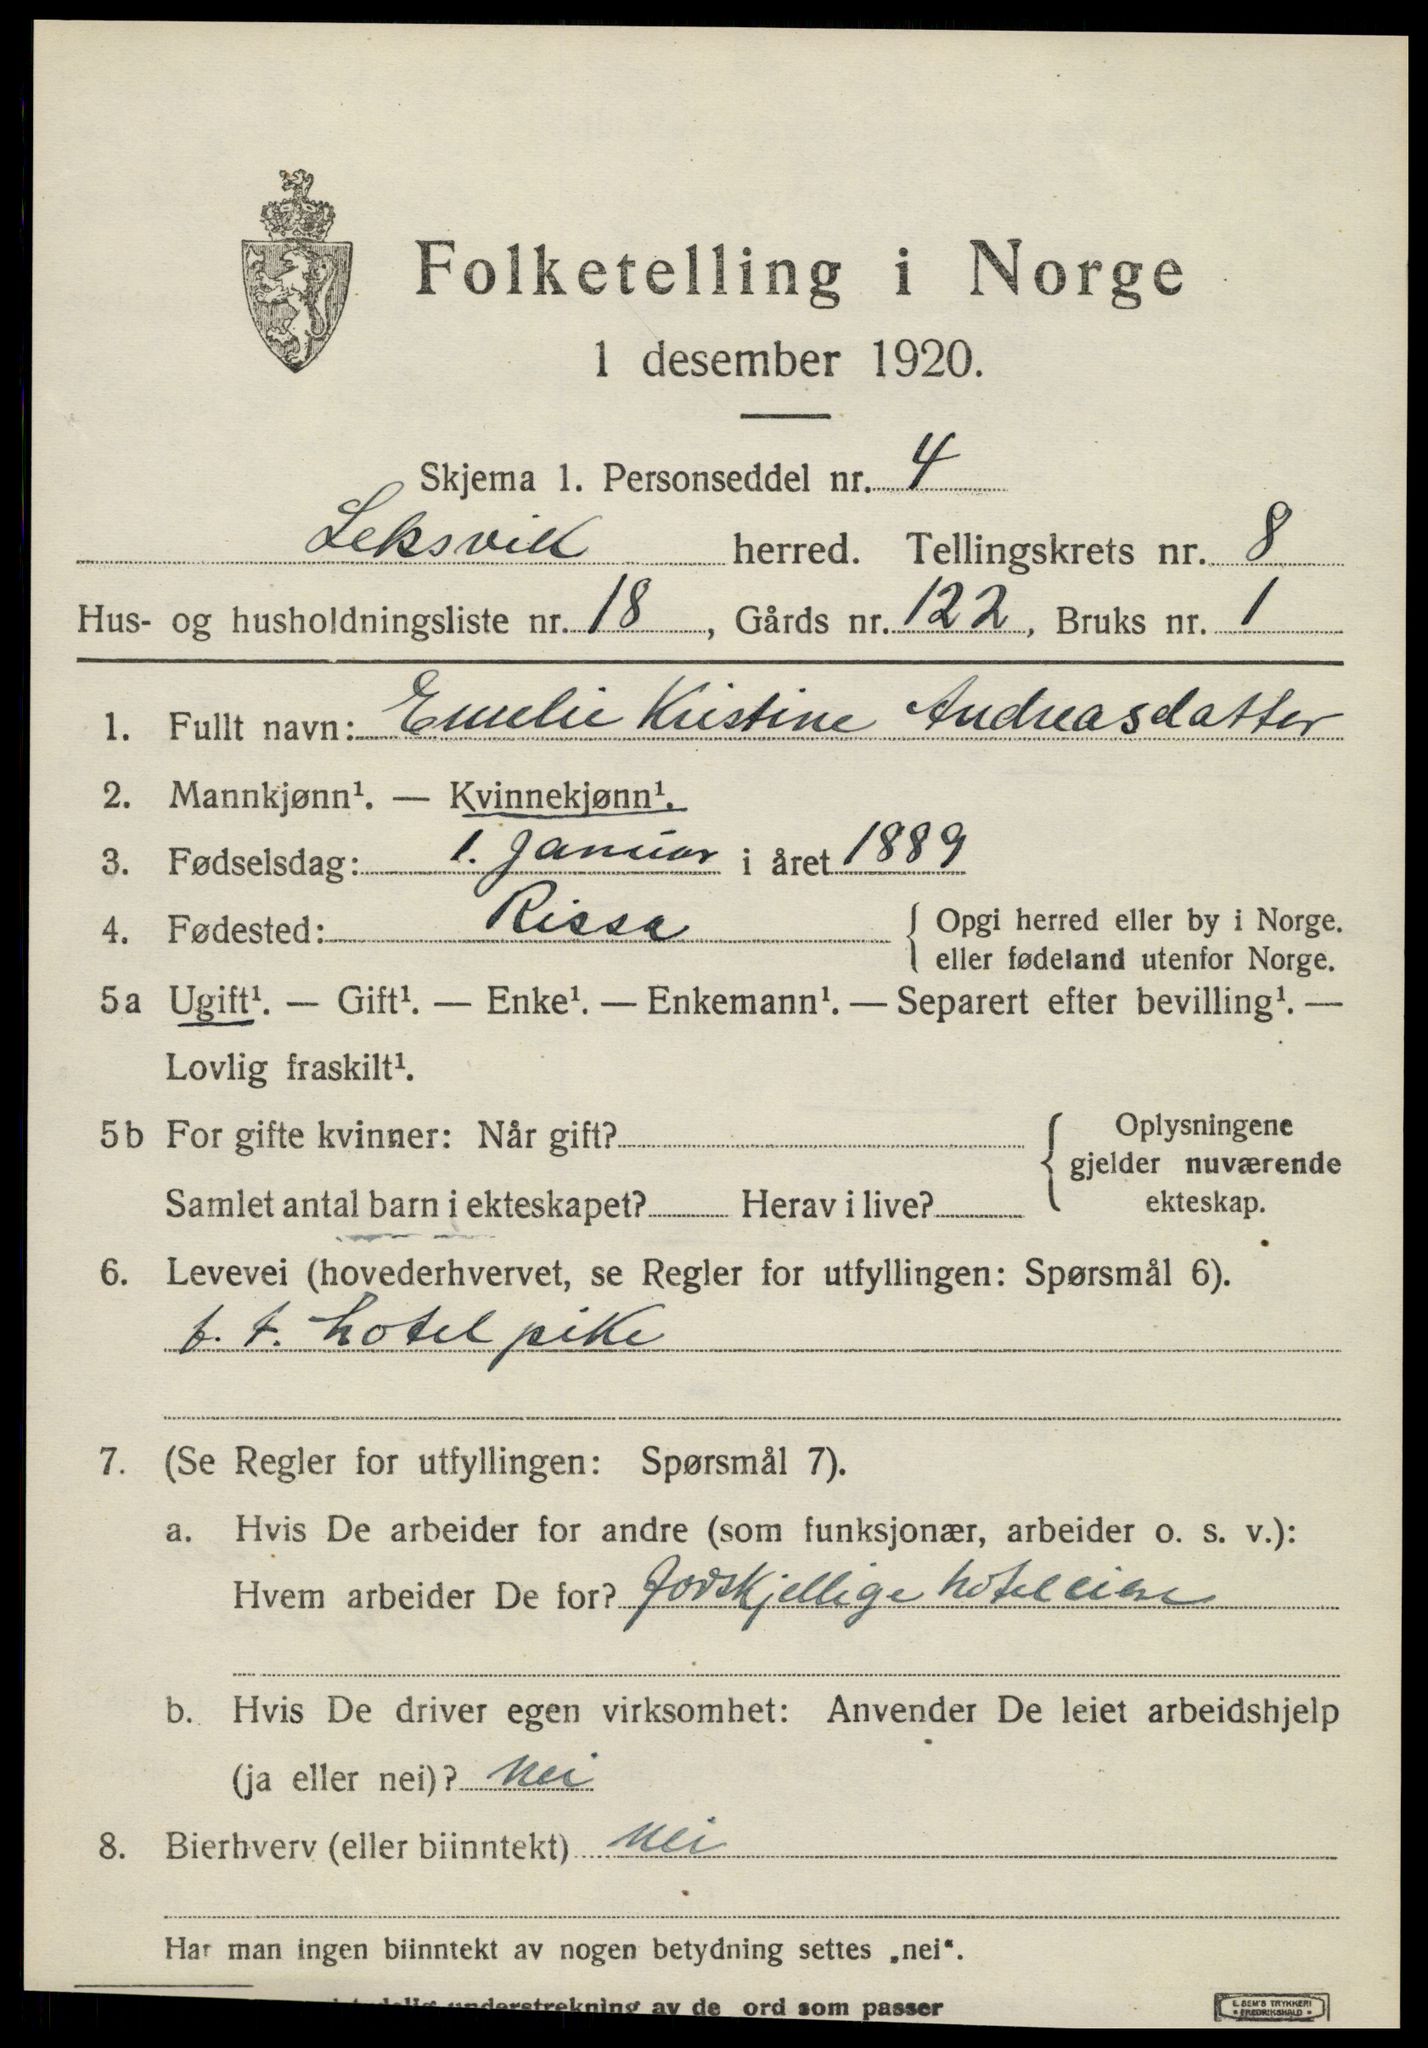 Folketelling i Norge
1 desember 1920.
Skjema 1. Personseddel nr. 4
Leksvik herred. Tellingskrets nr. 8
Hus- og husholdningsliste nr. 18, Gårds nr. 122, Bruks nr. 1
1. Fullt navn: Emelie Kristine Andreasdatter
2. Mannkjønn¹. — Kvinnekjønn¹.
3. Fødselsdag: 1. Januar i året 1889
4. Fødested: Rissa { Opgi herred eller by i Norge.
eller fødeland utenfor Norge.
5a Ugift¹. — Gift¹. — Enke¹. — Enkemann¹. — Separert efter bevilling¹. —
Lovlig fraskilt¹.
5b For gifte kvinner: Når gift? { Oplysningene
gjelder nuværende
Samlet antal barn i ekteskapet? Herav i live? ekteskap.
6. Levevei (hovederhvervet, se Regler for utfyllingen: Spørsmål 6).
f. t. hotel pike
7. (Se Regler for utfyllingen: Spørsmål 7).
a. Hvis De arbeider for andre (som funksjonær, arbeider o. s. v.):
Hvem arbeider De for? forskjellige hoteleiere
b. Hvis De driver egen virksomhet: Anvender De leiet arbeidshjelp
(ja eller nei)? nei
8. Bierhverv (eller biinntekt) nei
Har man ingen biinntekt av nogen betydning settes „nei“.
understrekning av de ord som passer
E. SEM'S TRYKKERI
FREDRIKSHALD